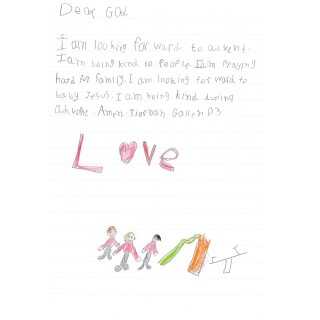 Dear God
I am looking for ward to advent.
I am being kind to people I am praying
hard for family. I am looking for ward to
baby Jesus. I am being kind during
Amen
Love